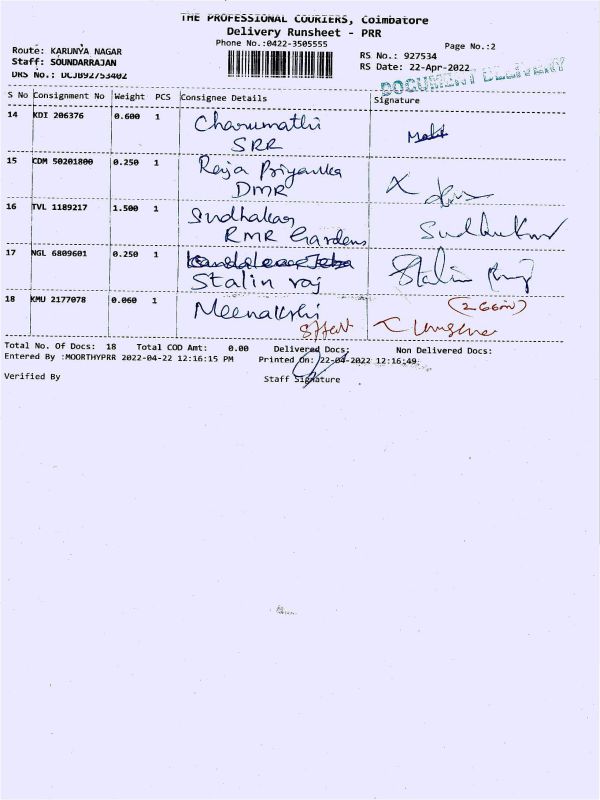 THE PROFESSIONAL COURIERS, Coimbatore
Delivery Runsheet - PRR
Phone No.:0422-3505555
Page No.:2
Route: KARUNYA NAGAR
Staff: SOUNDARRAJAN
DRS No.: DCJB92753402
RS No.: 927534
RS Date: 22-Apr-2022
DOCUMENT DELIVERY
S No Consignment No Weight PCS Consignee Details Signature
14 KDI 206376 0.600 1 Charumathi
SRR
15 CDM 50201800 0.250 1 Raja Priyanka
DMR
16 TVL 1189217 1.500 1 Sudhakar
RMR Gardens
Sudhakar
17 NGL 6809601 0.250 1
Stalin raj
Stalin Raj
18 KMU 2177078 0.060 1 Meenakshi
Total No. Of Docs: 18 Total COD Amt: 0.00 Delivered Docs: Non Delivered Docs:
Entered By :MOORTHYPRR 2022-04-22 12:16:15 PM Printed On: 22-04-2022 12:16:49
Verified By Staff Signature